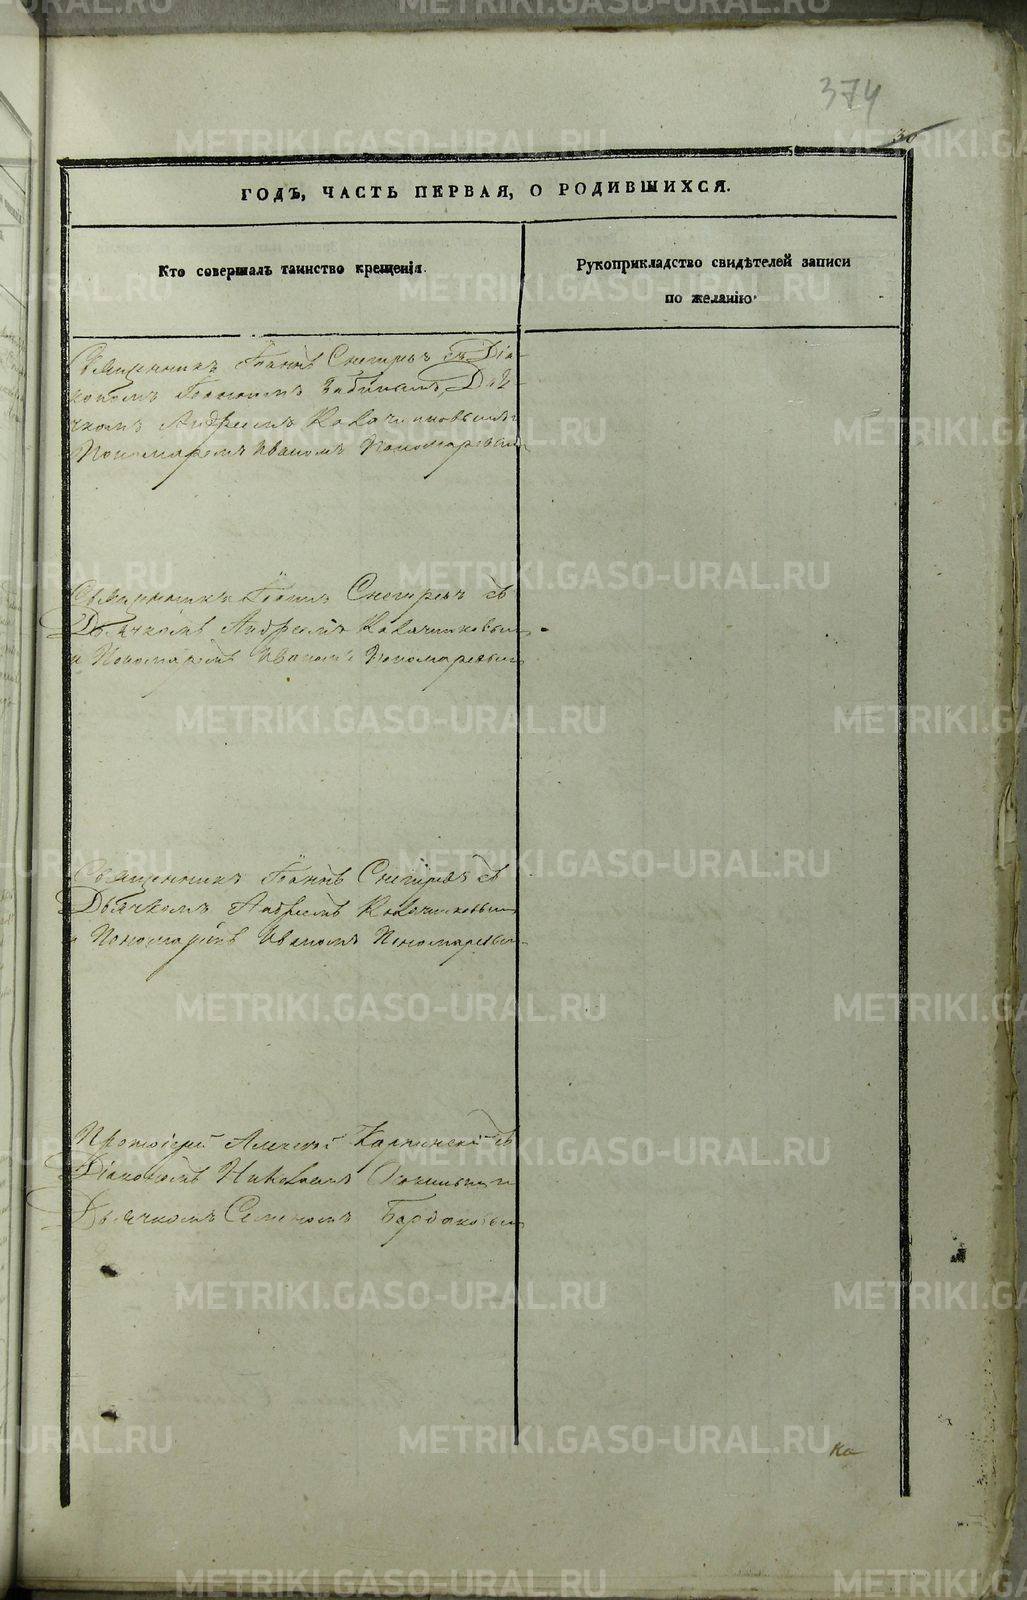 374
30
ГОДЪ, ЧАСТЬ ПЕРВАЯ, О РОДИВШИХСЯ.
Кто совершалъ таинство крещенія.
Рукоприкладство свидѣтелей записи
по желанію.
Священникъ Іоаннъ Снегиревъ съ Діа-
кономъ Дья-
чкомъ Андреемъ
Пономаремъ Иваномъ Пономаревымъ
Священникъ Іоаннъ Снегиревъ съ
Дьячкомъ Андреемъ
и Пономаремъ Иваномъ Пономаревымъ
Священникъ Іоаннъ Снегиревъ съ
Дьячкомъ Андреемъ
и Пономаремъ Иваномъ Пономаревымъ
Протоіерей Алексѣй Карпинскій съ
Діакономъ Николаемъ
Дьячкомъ Семеномъ
METRIKI.GASO-URAL.RU